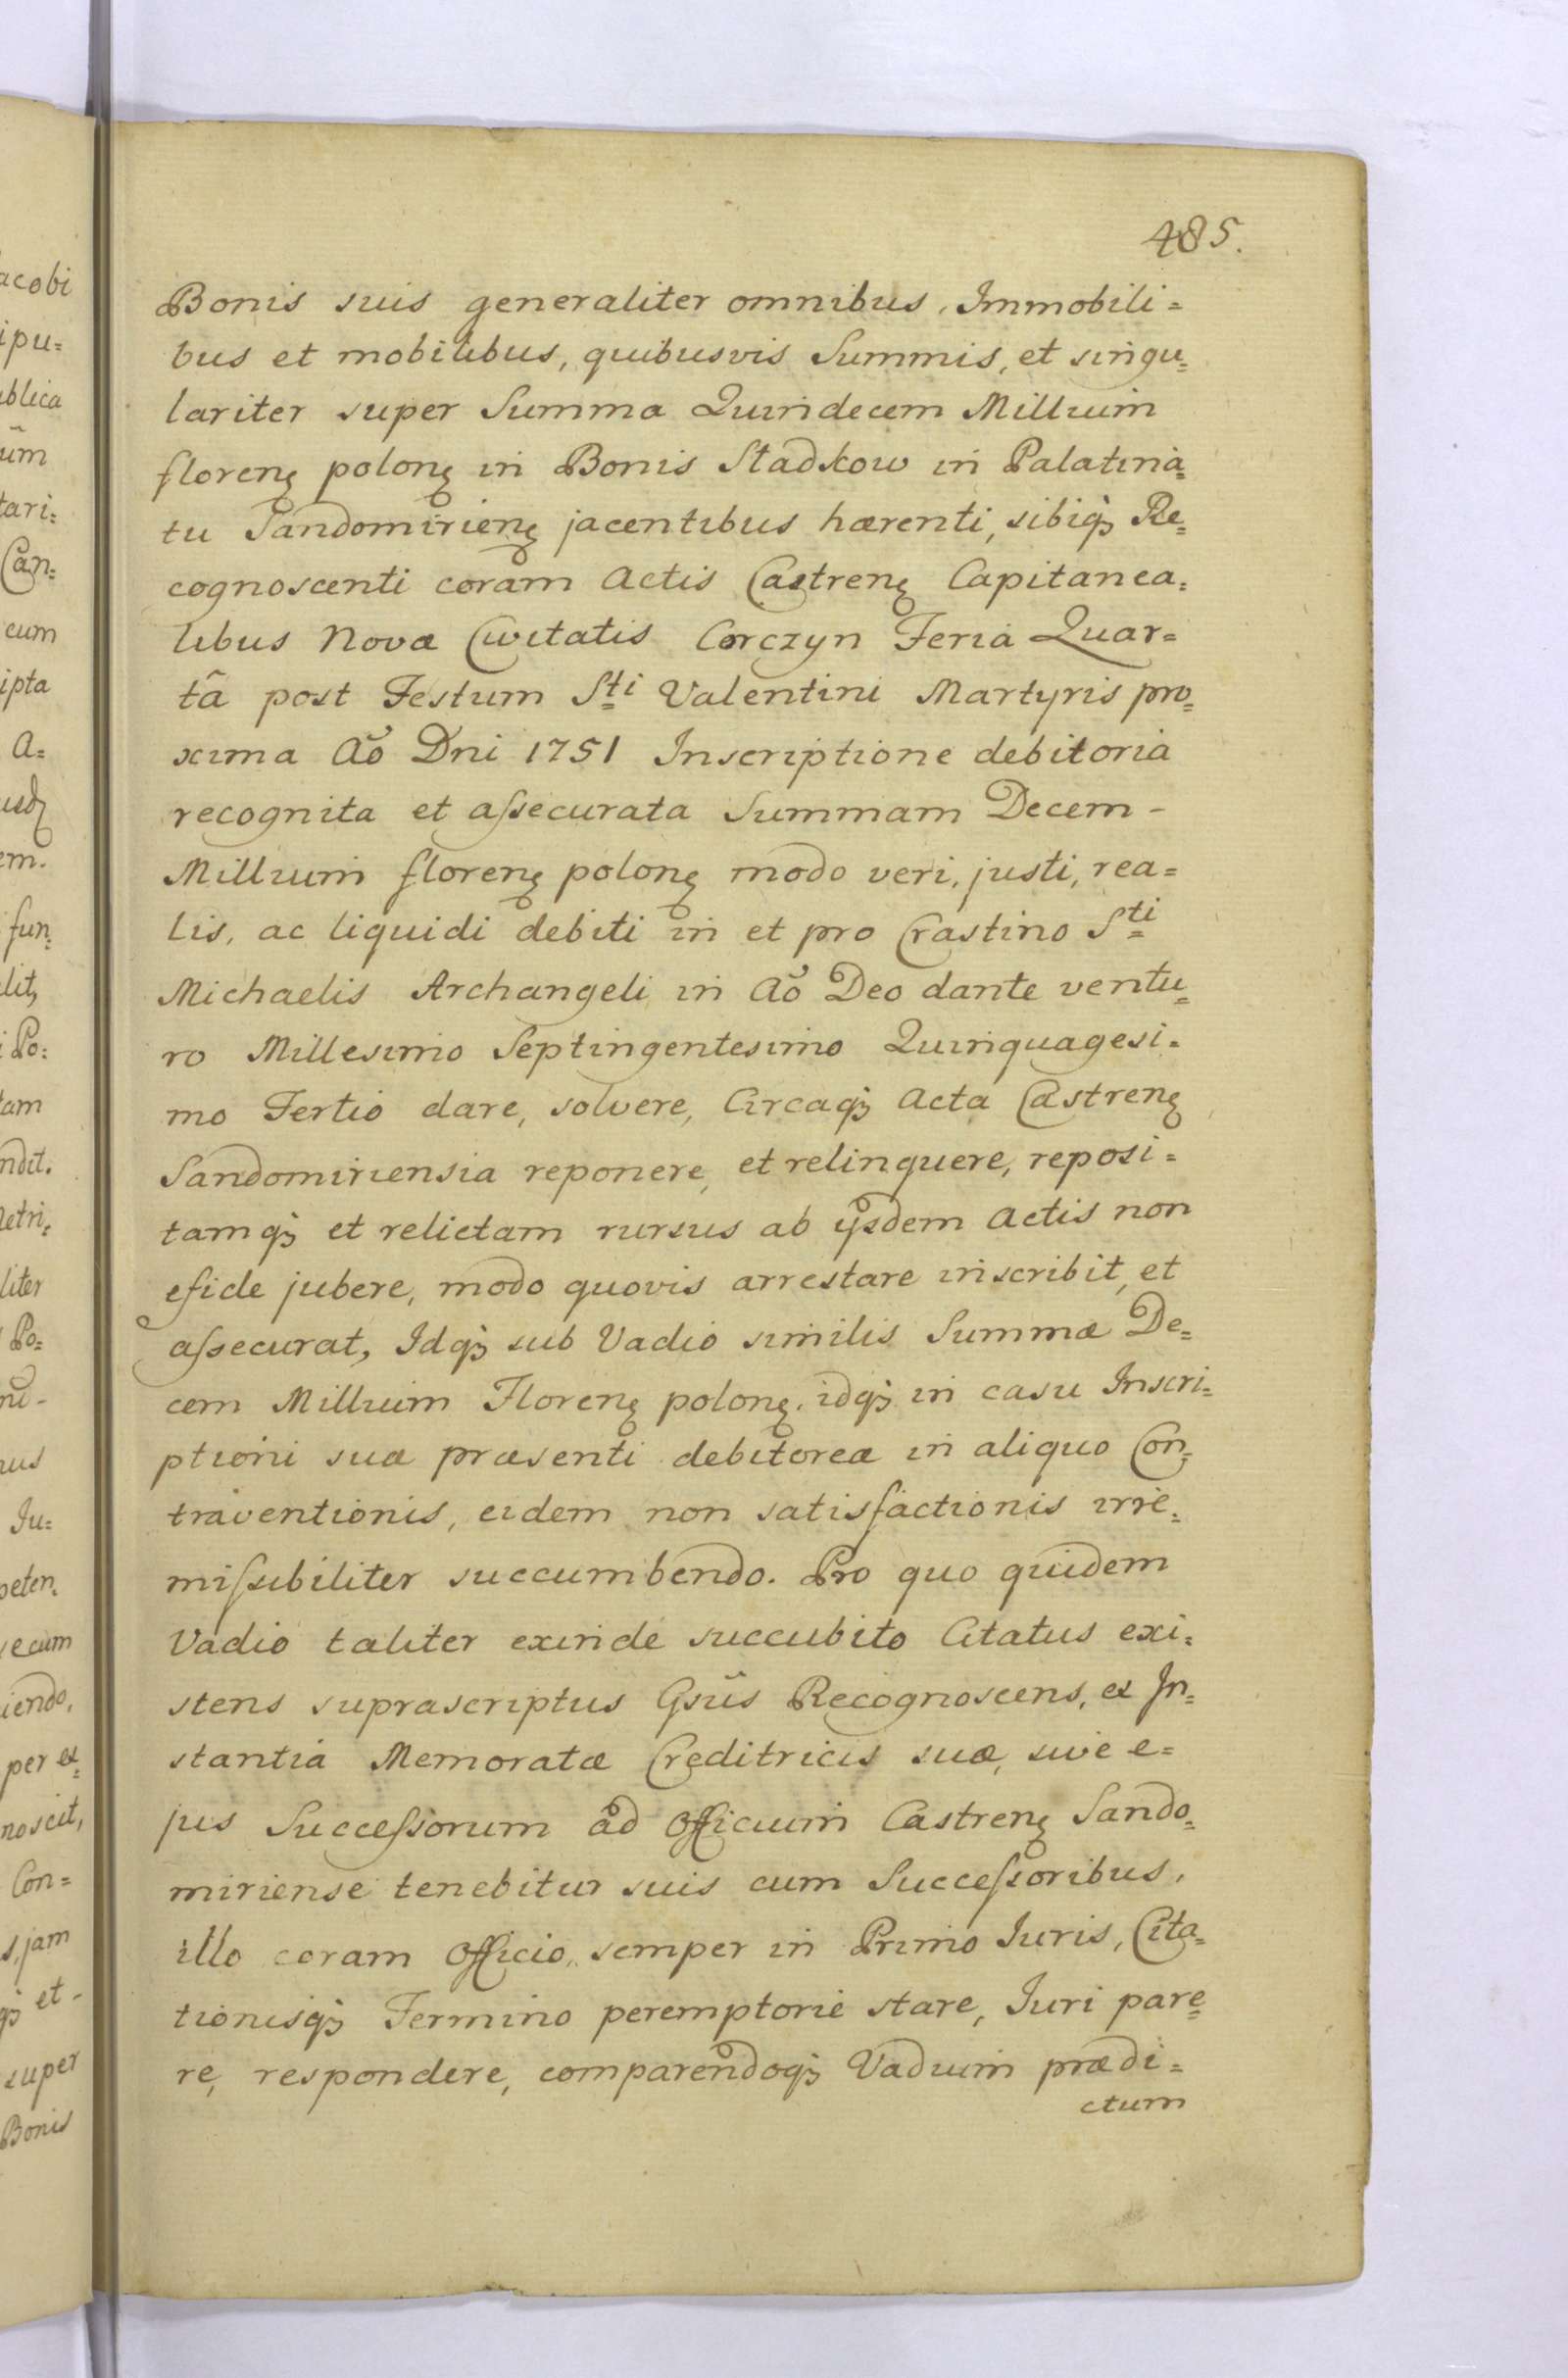 485.
Bonis suis generaliter omnibus, Immobili=
bus et mobilibus, quibusvis Summis, et singu=
lariter super Summa Quindecem Millium
florenę polonę in Bonis Stadkow in Palatina=
tu Sandomirienę jacentibus hærenti, sibiqꝫ Re=
cognoscenti coram Actis Castrenę Capitanea=
libus Novæ Civitatis Corczyn Feria Quar=
tã post Festum Sti Valentini Martyris pro=
xima Aõ Dni 1751 Inscriptione debitoria
recognita et aſsecurata Summam Decem-
Millium florenę polonę modo veri, justi, rea=
lis, ac liquidi debiti in et pro Crastino Sti
Michaelis Archangeli in Aõ Deo dante ventu=
ro Millesimo Septingentesimo Quinquagesi=
mo Tertio dare, solvere, Circaqꝫ Acta Castrenę
Sandomiriensia reponere, et relinquere, reposi=
tamqꝫ et relictam rursus ab ijsdem Actis non
efide jubere, modo quovis arrestare inscribit, et
aſsecurat, Idqꝫ sub Vadio similis Summæ De=
cem Millium Florenę polonę, idqꝫ in casu Inscri=
ptioni suæ præsenti debitoreæ in aliquo Con=
traventionis, eidem non satisfactionis irre=
miſsibiliter succumbendo. Pro quo quidem
Vadio taliter exinde succubito Citatus exi=
stens suprascriptus Gsũs Recognoscens, ex In=
stantia Memoratæ Creditricis suæ, sive e=
jus Succeſsorum ad Officium Castrenę Sando=
miriense tenebitur suis cum Succeſsoribus,
illo coram Officio, semper in Primo Iuris, Cita=
tionisqꝫ Termino peremptorie stare, Iuri pare=
re, respondere, comparendoqꝫ Vadium prædi=
ctum
acobi
ipu=
ublica
ũm
tari=
Can=
cum
ipta
A=
em.
fun=
lit,
i Po=
tam
ndit.
Petri=
liter
Po=
ni-
nus
Iu=
peten=
secum
iendo,
per ex=
noscit,
Con=
s, jam
qꝫ et-
super
Bonis